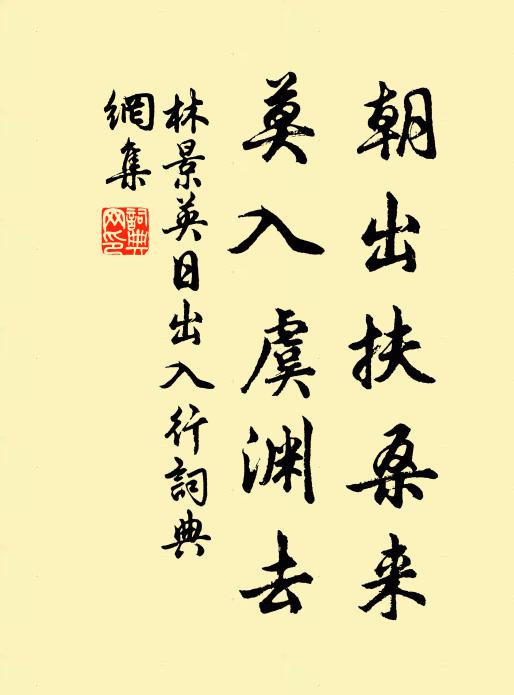 朝出扶桑来
莫入虞渊去
林景英日出入行詞典
網集
詞典
网印